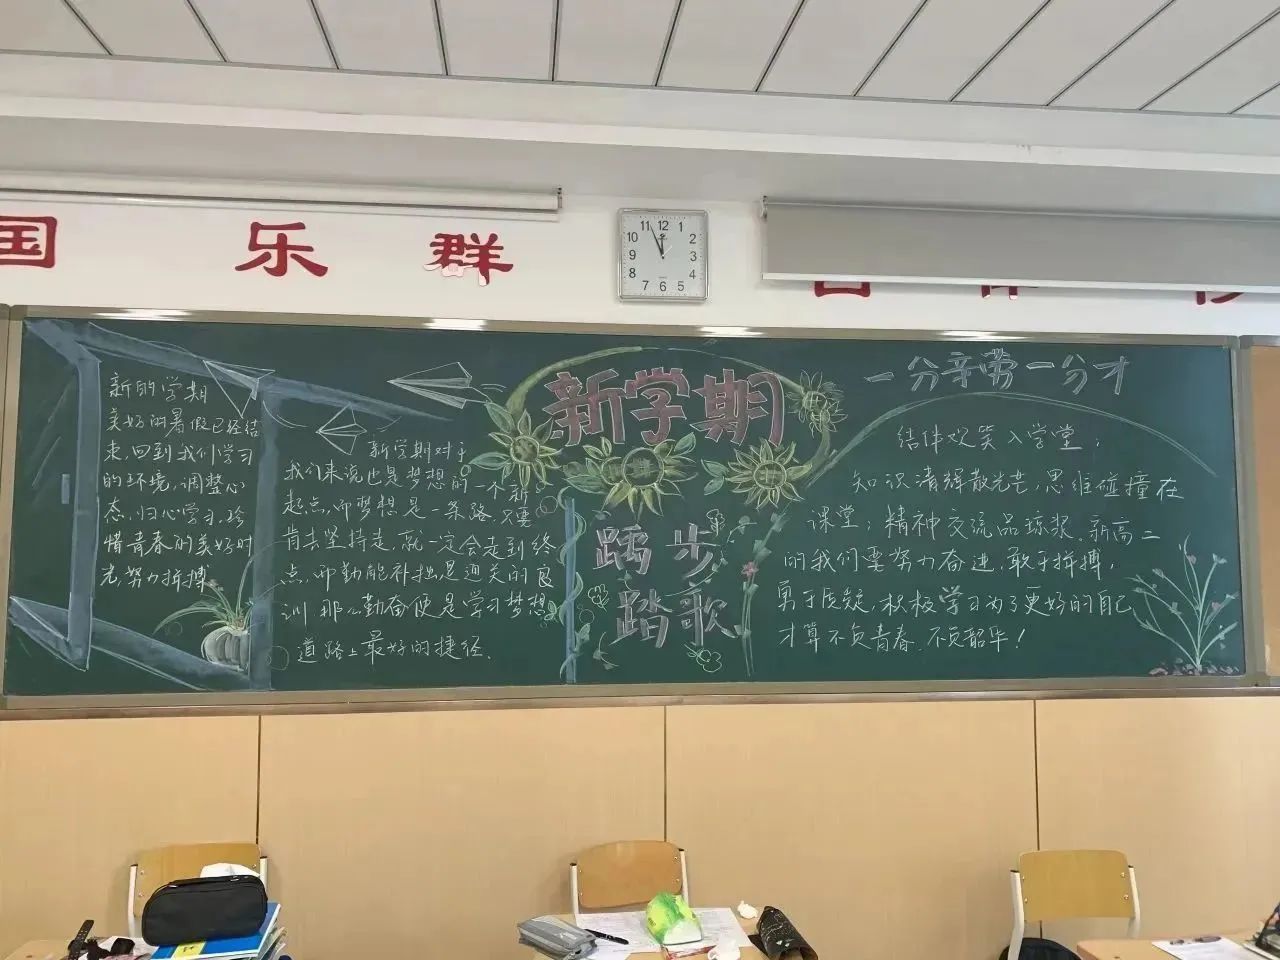 国 乐 群
11 12 1
10 2
9 3
8 4
7 6 5
新的学期
美好的暑假已经结
束,回到我们学习
的环境,调整心
态,归心学习,珍
惜青春的美好时
光,努力拼搏
新学期对于
我们来说也是梦想的一个新
起点,而梦想是一条路,只要
肯去坚持走,就一定会走到终
点,而勤能补拙是通关的良
训 那么勤奋便是学习梦想
道路上最好的捷径.
新学期
踽步
踏歌
一分辛劳一分才
结伴欢笑入学堂;
知识清辉散光芒,思维碰撞在
课堂;精神交流品琼浆,新高二
的我们要努力奋进,敢于拼搏,
勇于质疑,积极学习为了更好的自己
才算不负青春,不负韶华!